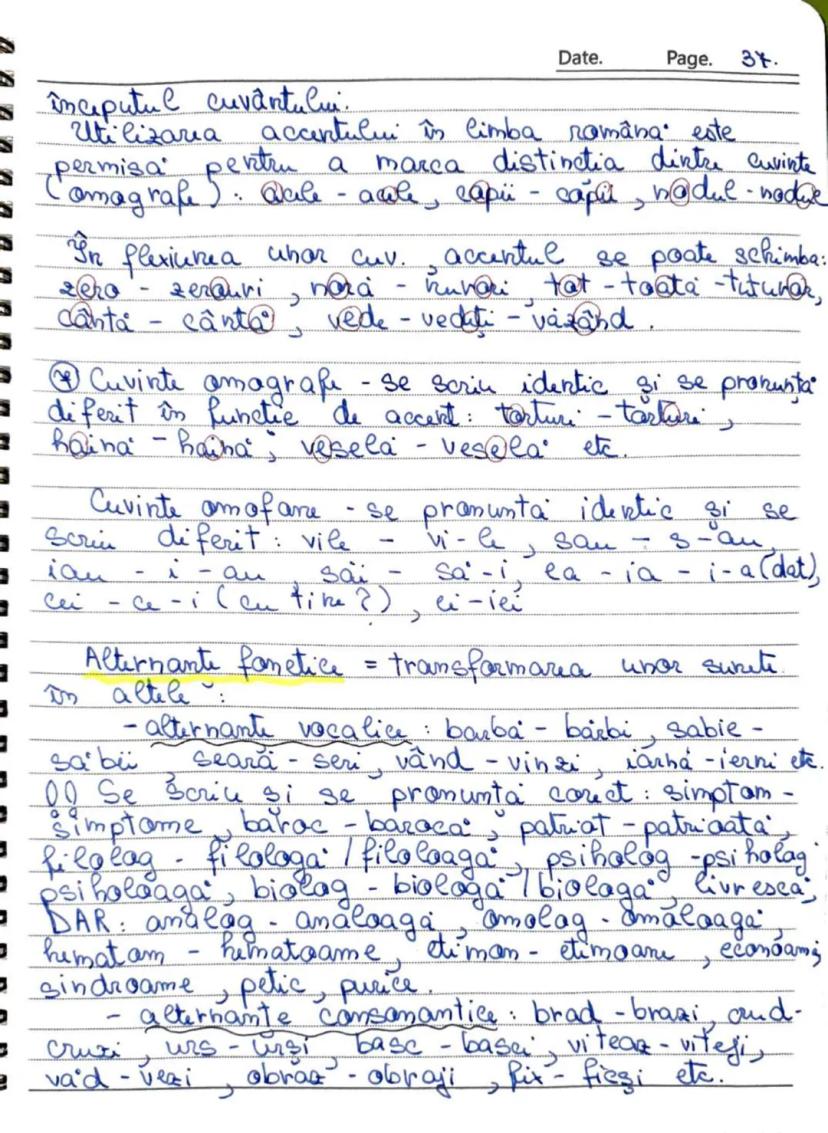 Date. Page. 37.
începutul cuvântului.
Utilizarea accentului în limba română este
permisă pentru a marca distincția dintre cuvinte
(omografe): acele - acele, copii - copii, modul - modul
În flexiunea unor cuv., accentul se poate schimba:
zero - zerouri, noră - nurori, tot - toată - tuturor,
cântă - cântă, vede - vedeți - văzând.
* Cuvinte omografe - se scriu identic și se pronunță
diferit în funcție de accent: torturi - torturi,
haină - haină, veselă - veselă etc.
Cuvinte omofone - se pronunță identic și se
scriu diferit: vile - vi-le, sau - s-au,
iau - i-au săi - să-i, ea - ia - i-a (dat),
cei - ce-i (cu tine?), ei - iei
Alternanțe fonetice = transformarea unor sunete
în altele:
- alternanțe vocalice: barbă - bărbi, sabie -
săbii seară - seri, vând - vinzi, iarnă - ierni etc.
Se scriu și se pronunță corect: simptom -
simptome, baroc - barocă, patriot - patrioată,
filolog - filologă / filoloagă, psiholog - psihologă
psiholoagă, biolog - biologă / biologă, livrescă,
DAR: analog - analoagă, omolog - omoloagă,
hematom - hematoame, etimon - etimoane, economi,
sindroame, petic, purice.
- alternanțe consonantice: brad - brazi, crud -
cruzi, urs - urși, basc - basci, viteaz - viteji,
văd - vezi, obraz - obraji, fix - ficși etc.